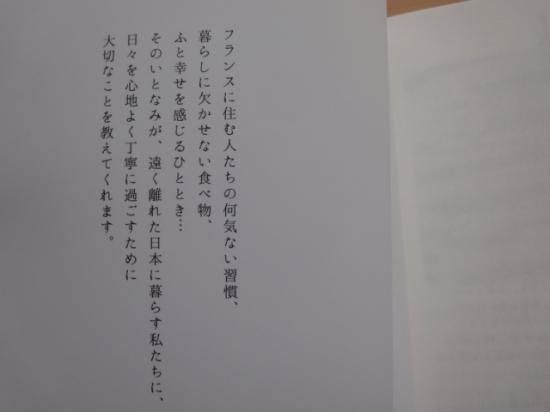 フランスに住む人たちの何気ない習慣、
暮らしに欠かせない食べ物、
ふと幸せを感じるひととき…
そのいとなみが、遠く離れた日本に暮らす私たちに、
日々を心地よく丁寧に過ごすために
大切なことを教えてくれます。